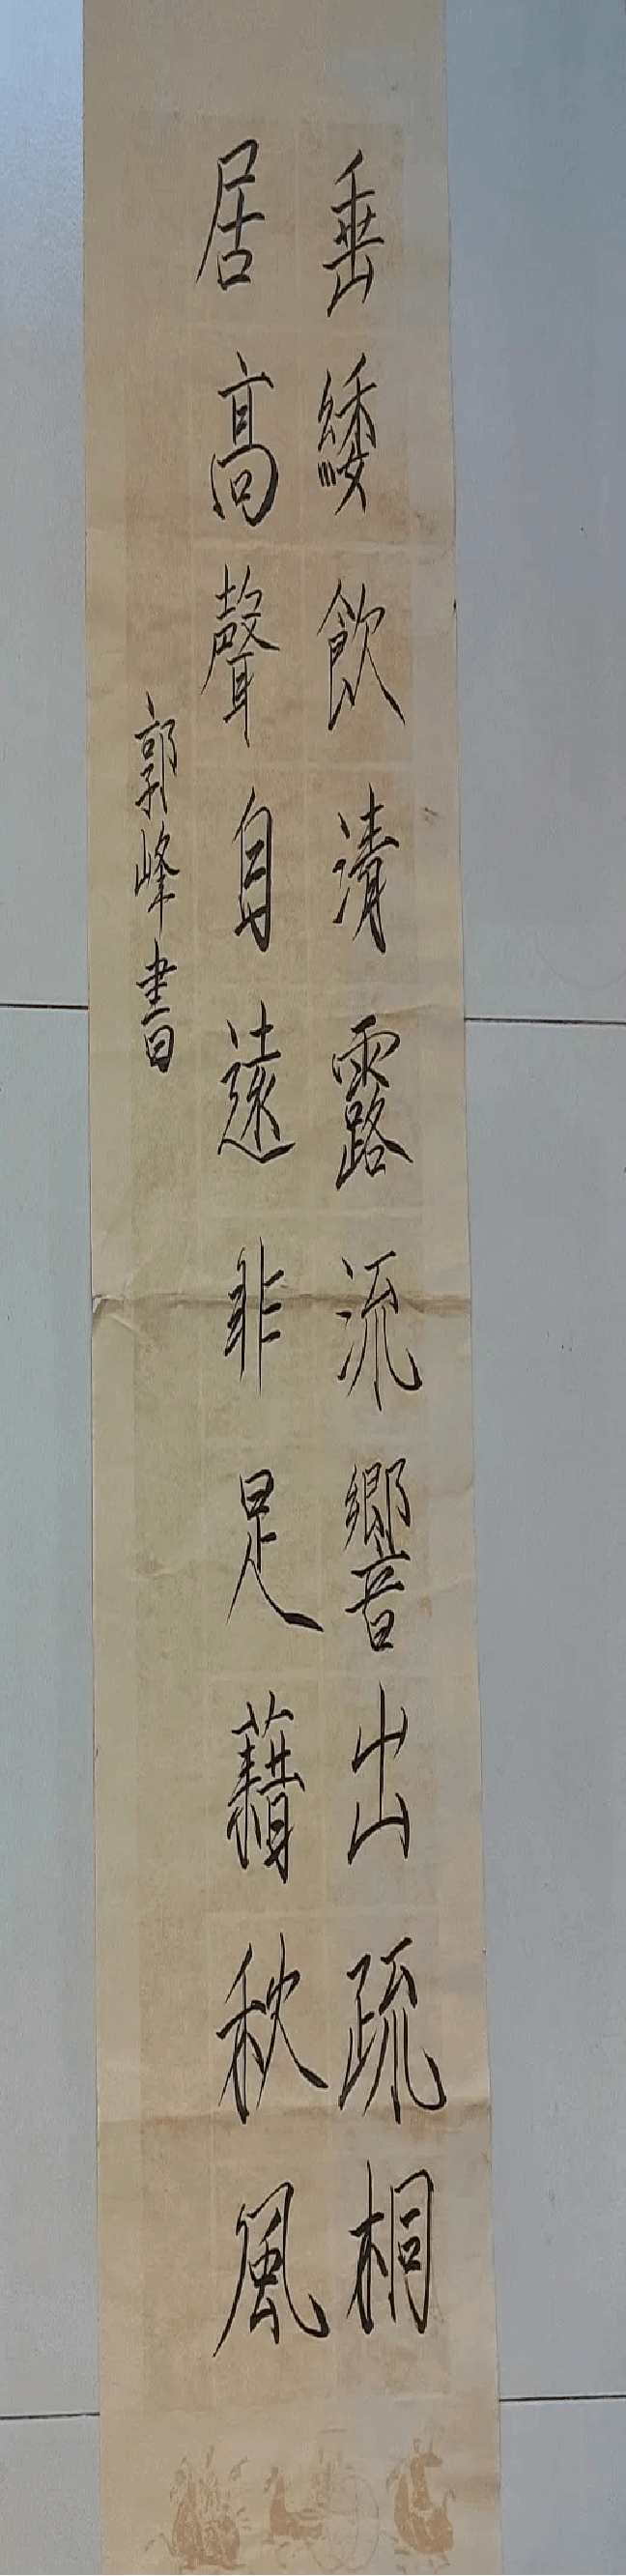 垂緌飲清露流響出疏桐
居高聲自遠非是藉秋風
郭峰書